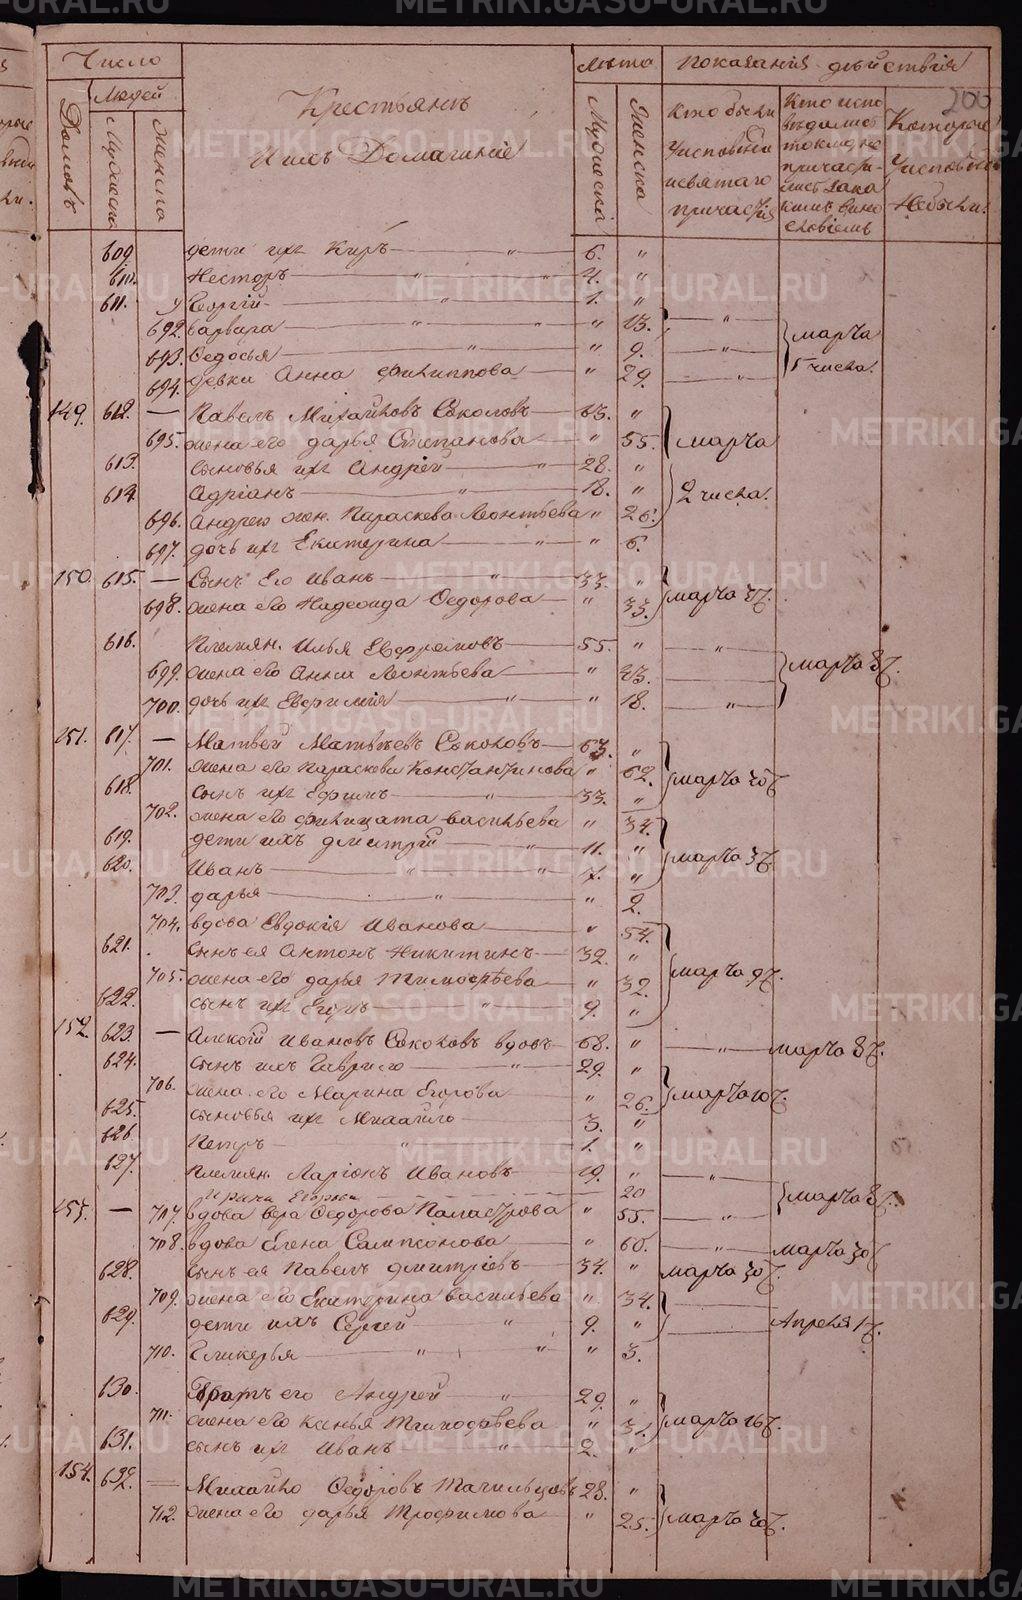 Число
Лѣта
Показанія дѣйствія
200
Людей
Домовъ
Мужеска
Женска
Крестьянъ
и ихъ Домашніе
Мужеска
Женска
Кто были у исповѣди и святаго причастія
Кто исповѣдались токмо, не причастились
Которые у исповѣди не были
609. дети ихъ Киръ 6. "
610. Несторъ 4. "
611. Георгій 1. "
692. Варвара " 13. "
693. Ѳедосья " 9. "
694. девки Анна Филиппова " 29. "
марта 5 числа.
149. 612. — Павелъ Михайловъ Соколовъ 63. "
695. жена его Дарья Степанова " 55.
марта 2 числа.
613. сыновья ихъ Андрей 28. "
614. Адріанъ 18. "
696. Андрею жен. Параскева Леонтьева " 26.
697. дочь ихъ Екатерина " 6.
150. 615. — Сынъ Его Иванъ 33. "
698. жена его Надежда Ѳедорова " 33.
марта 3 ч.
616. Племян. Илья Евфремовъ 55. " "
699. жена его Анна Леонтьева " 43.
700. дочь ихъ Евфимія " 18. "
марта 8 ч.
151. 617. — Матвей Матвеевъ Соколовъ 63. "
701. жена его Параскева Константинова " 62.
618. сынъ ихъ Ефимъ 33. "
марта 20 ч.
702. жена его Филицата Васильева " 34.
619. дети ихъ Дмитрій 11. "
620. Иванъ 7. "
марта 3 ч.
703. Дарья " 2.
704. вдова Евдокія Иванова " 54.
621. сынъ ея Антонъ Никитинъ 32. "
705. жена его Дарья Тимофеева " 32.
622. сынъ ихъ Егоръ 9. "
марта 9 ч.
152. 623. — Алексѣй Ивановъ Соколовъ вдовъ 68. " " марта 8 ч.
624. сынъ ихъ Гаврило 29. "
706. жена его Марина Егорова " 26.
марта 10 ч.
625. сыновья ихъ Михайло 3. "
626. Петръ 1. "
627. Племян. Ларіонъ Ивановъ 19. " "
Ирина 20
марта 8 ч.
153. — 707. вдова Вера Ѳедорова " 55. "
708. вдова Елена Сампсонова " 60. " марта 30
628. сынъ ея Павелъ Дмитріевъ 34. " марта 30 ч.
709. жена его Екатерина Васильева " 34.
629. дети ихъ Сергей 9. " Апреля 1 ч.
710. Гликерья " 3.
630. Братъ его Андрей 29. "
711. жена его Ксенья Тимофеева " 31.
631. сынъ ихъ Иванъ 2. "
марта 16 ч.
154. 632. Михайло Ѳедоровъ Тагильцовъ 28. "
712. жена его Дарья Трофимова " 25.
марта 20 ч.
METRIKI.GASO-URAL.RU